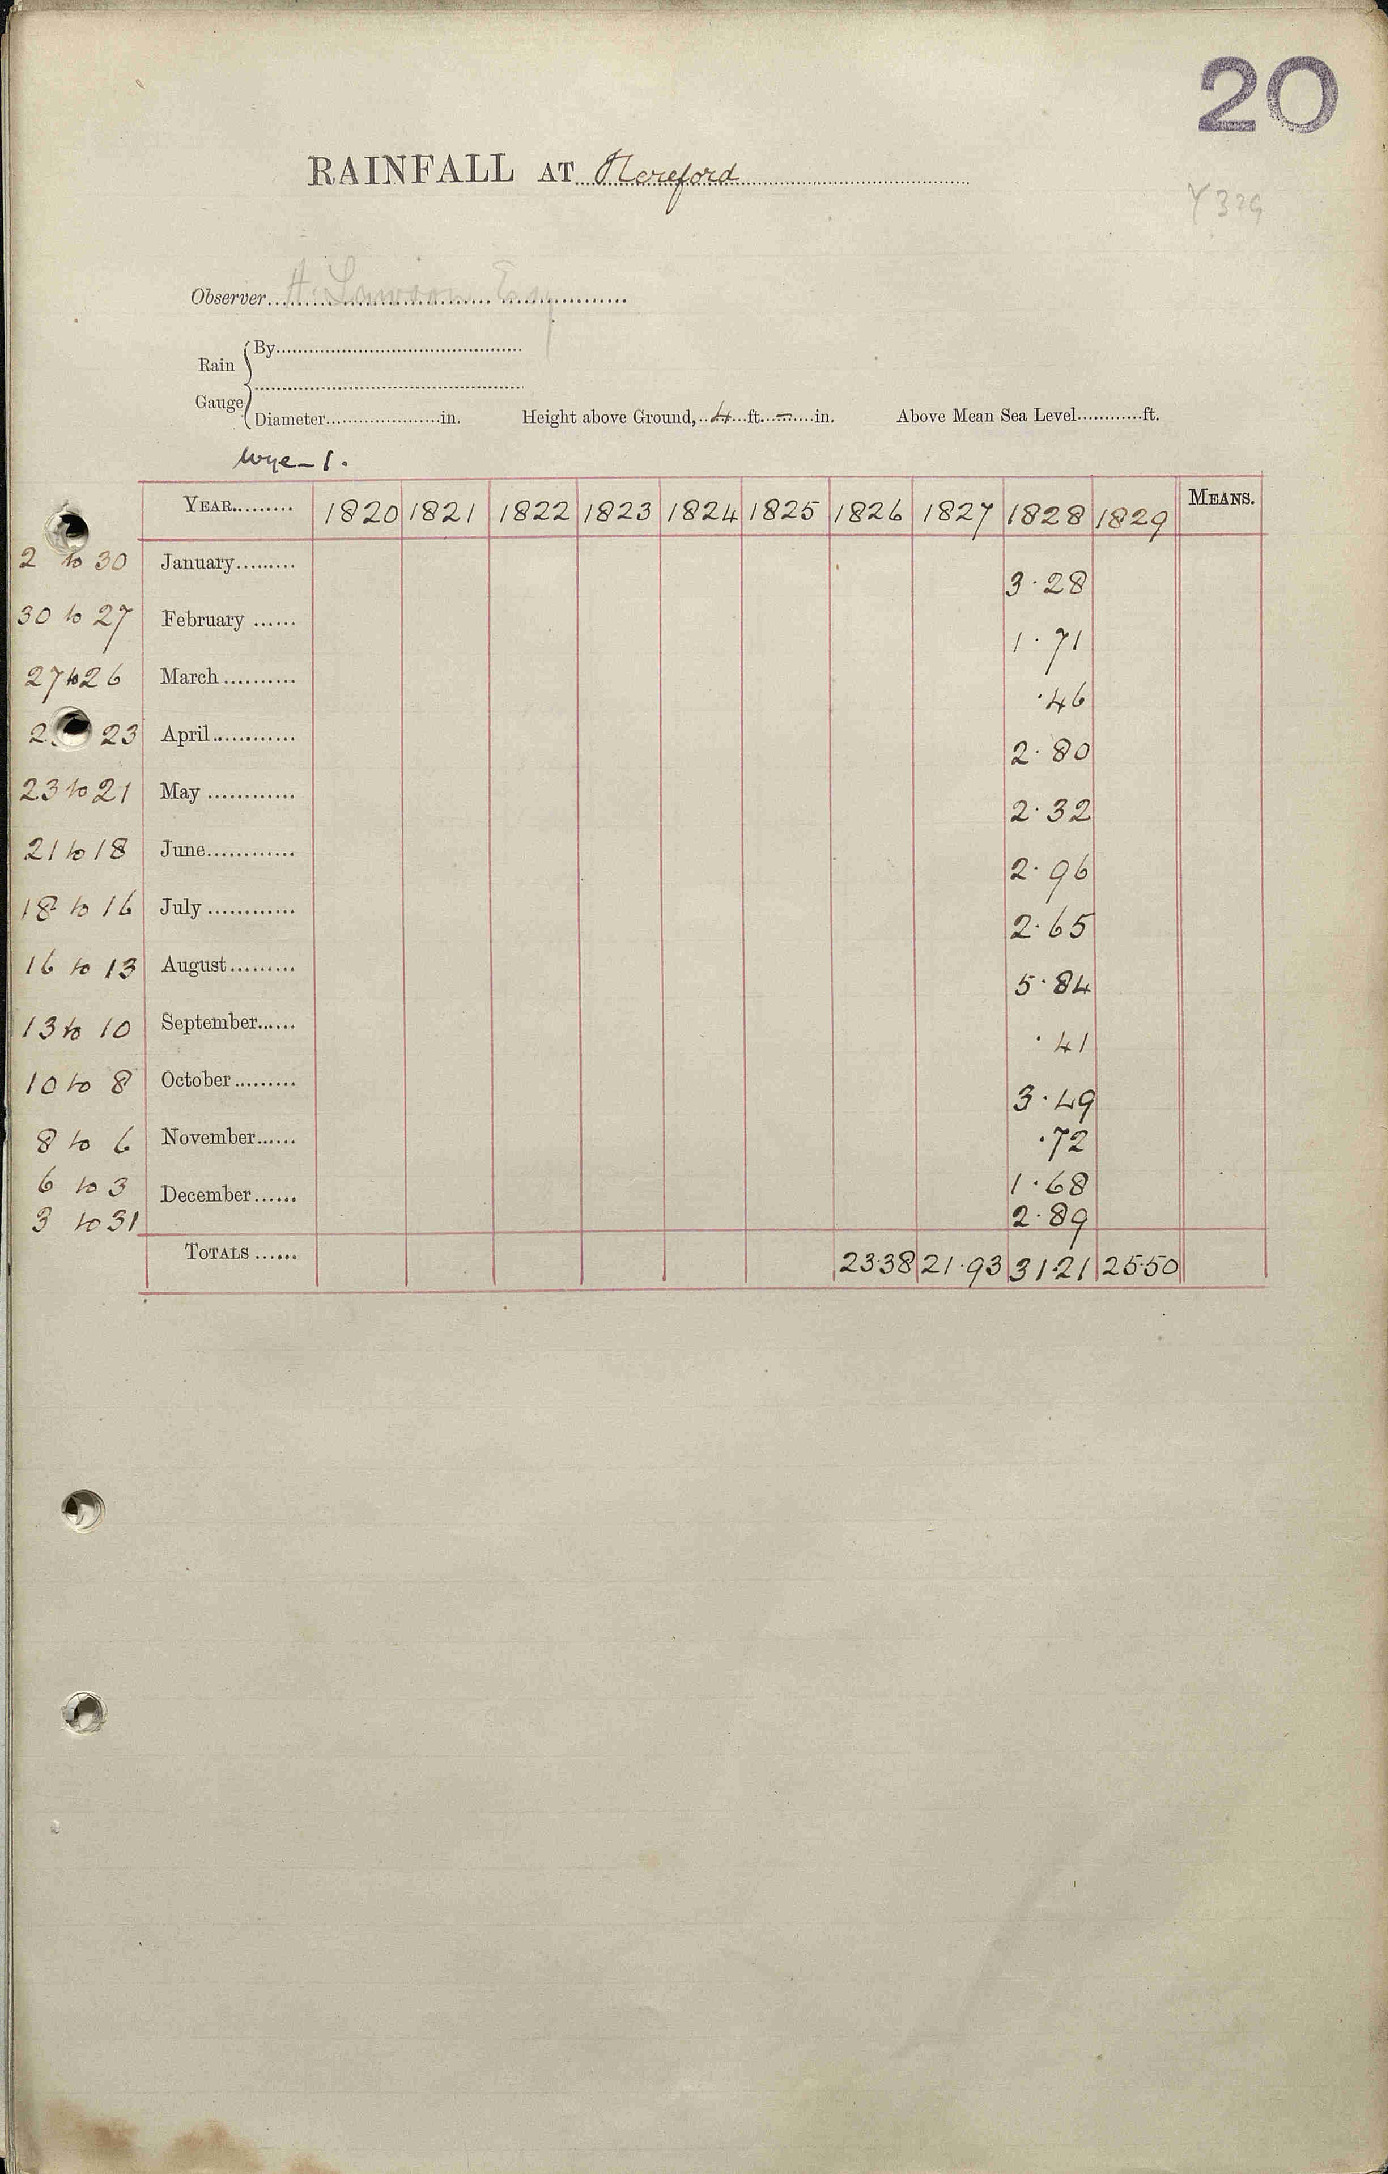 20
RAINFALL AT Hereford
Y 329
Observer A. Lawson Esq
Rain Gauge
By
Diameter in. Height above Ground, 4 ft. - in. Above Mean Sea Level ft.
Wye - 1.
YEAR 1820 1821 1822 1823 1824 1825 1826 1827 1828 1829 MEANS.
2 to 30 January 3.28
30 to 27 February 1.71
27 to 26 March .46
2 23 April 2.80
23 to 21 May 2.32
21 to 18 June 2.96
18 to 16 July 2.65
16 to 13 August 5.84
13 to 10 September .41
10 to 8 October 3.49
8 to 6 November .72
6 to 3 December 1.68
3 to 31 2.89
TOTALS 23.38 21.93 31.21 25.50